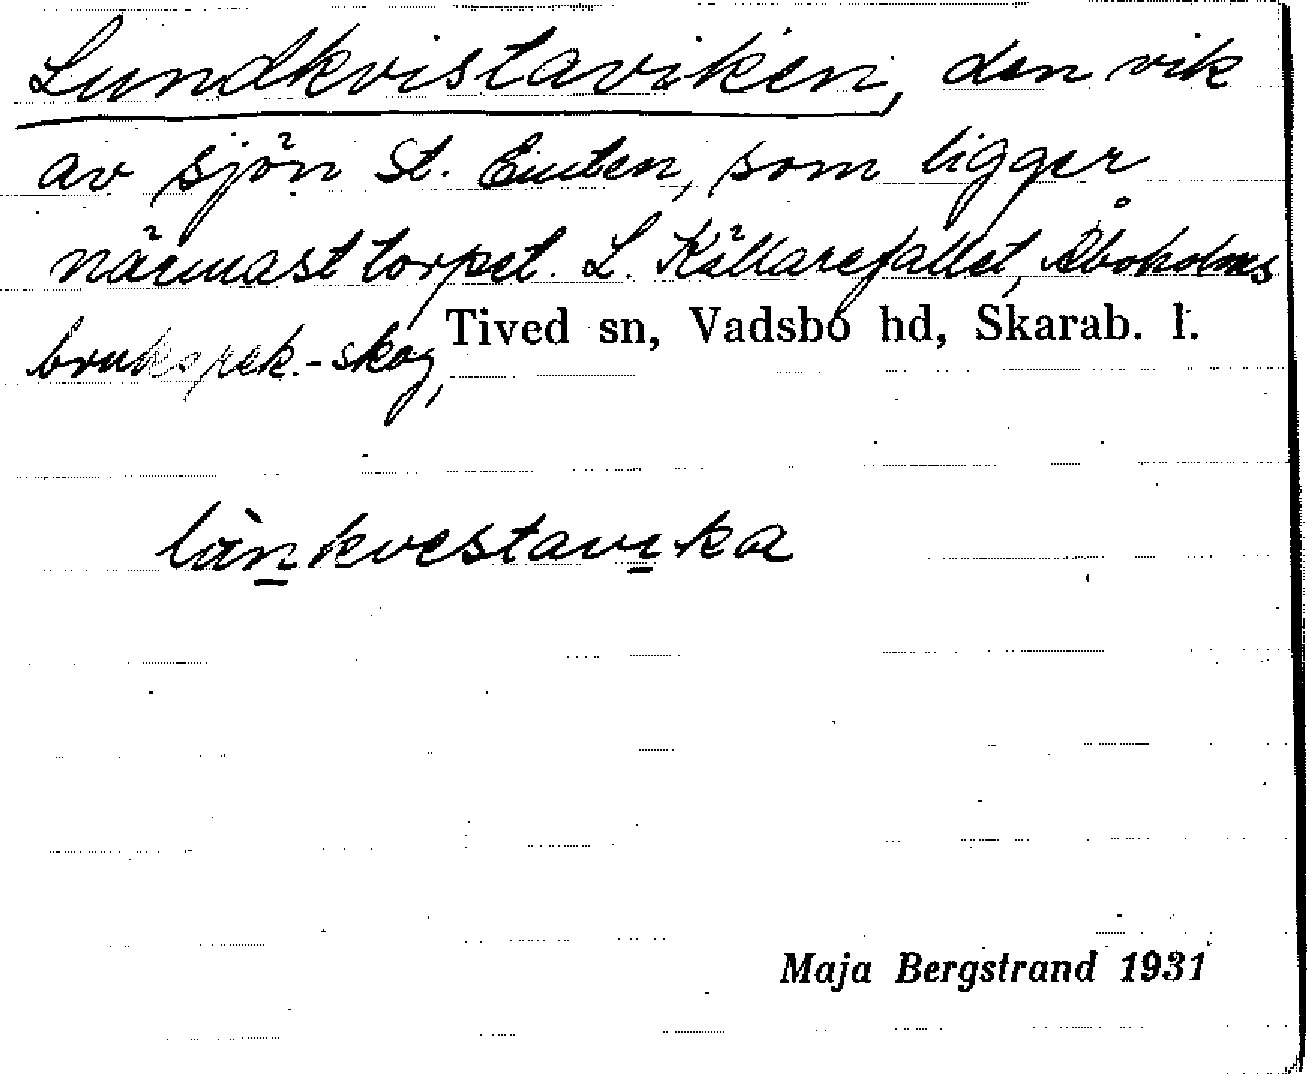 Lundkvistaviken, den vik
av sjön St. Emten, som ligger
närmast torpet. L. Källarefallet, Åboholms
bruks rek.-skog, Tived sn, Vadsbo hd, Skarab. l.
lànkvestavika
Maja Bergstrand 1931